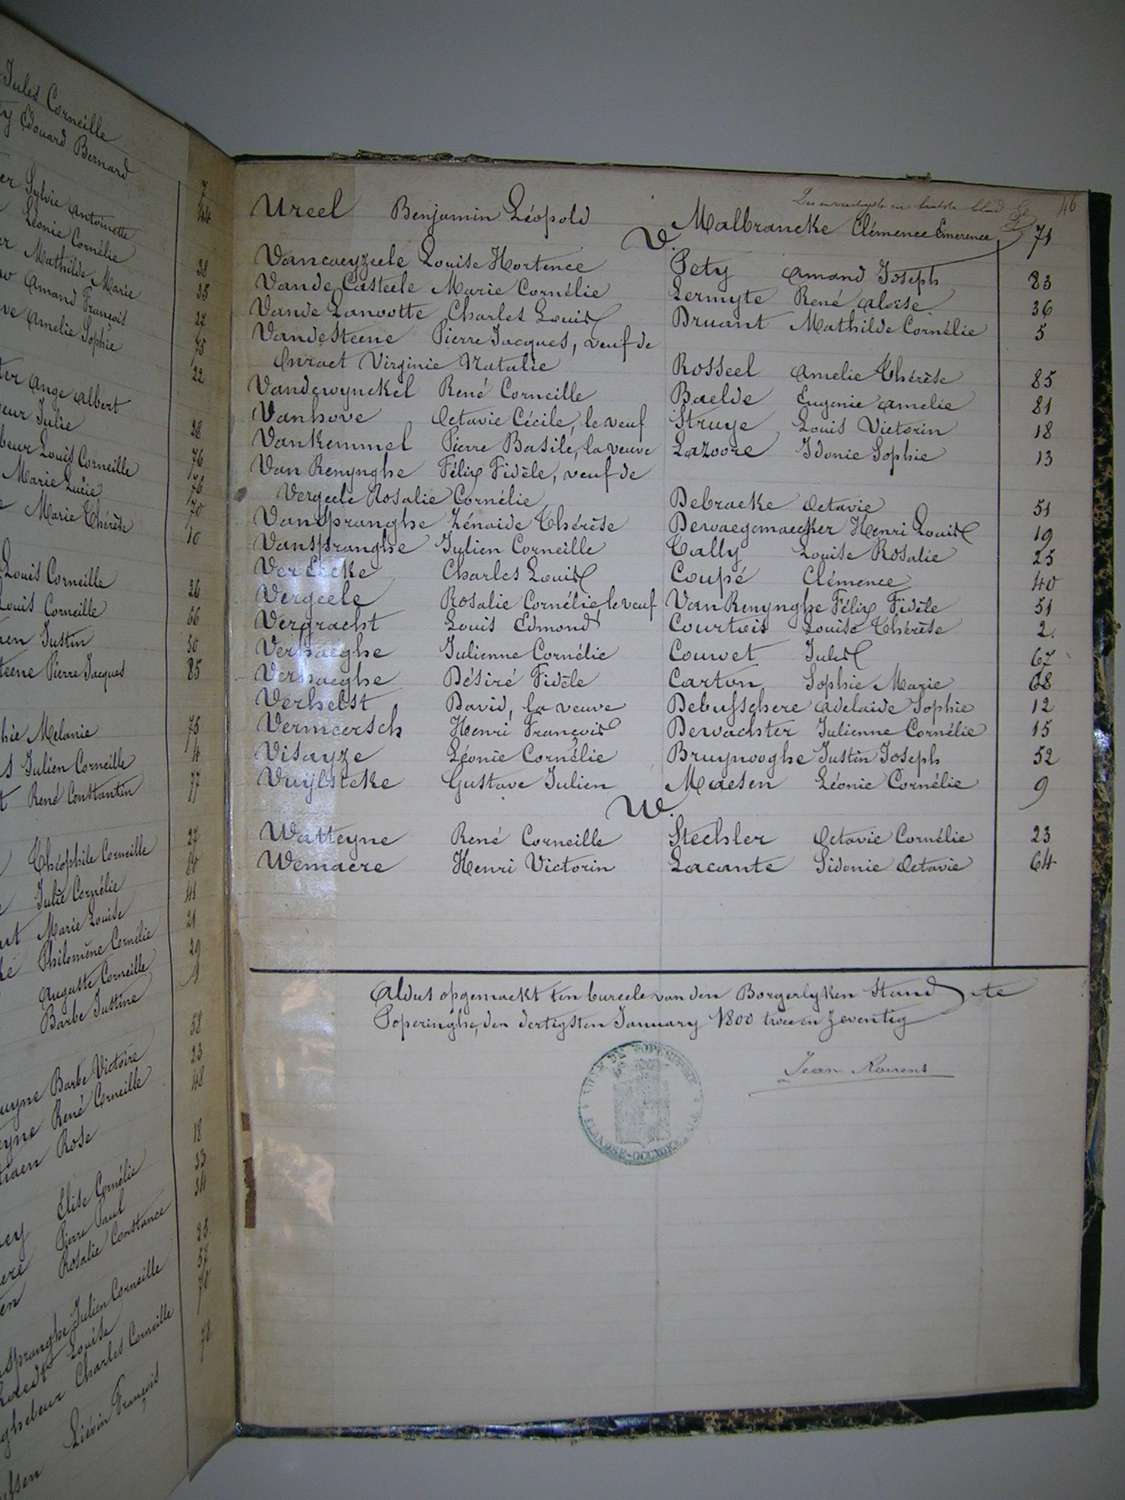 Jules Corneille
Edouard Bernard
7
44
Sylvie Antoinette
Léonie Cornélie
Mathilde Marie
38
Amand François
35
Amelie Sophie
22
75
22
Ange Albert
Julie
28
Louis Corneille
76
Marie Lucie
76
Marie Thérèse
70
10
Louis Corneille
26
Louis Corneille
66
Justin
50
Pierre Jacques
85
Melanie
75
Julien Corneille
4
René Constantin
77
Théophile Corneille
27
Julie Cornélie
Marie Louise
41
Philomène Cornélie
21
Auguste Corneille
29
Barbe Justine
58
Barbe Victoire
33
René Corneille
48
Rose
18
Elise Cornélie
33
Pierre Paul
34
Rosalie Constance
28
57
Julien Corneille
70
Louise
Charles Corneille
78
Liévin François
46
Ureel Benjamin Léopold Malbrancke Clémence Emerence 71
V.
Vancaeyzeele Louise Hortence Pety Amand Joseph 83
Vande Casteele Marie Cornélie Lermyte René Aloïse 36
Vande Lanootte Charles Louis Bruant Mathilde Cornélie 5
Vandesteene Pierre Jacques, veuf de
Virginie Natalie Rosseel Amelie Thérèse 85
Vandewynckel René Corneille Baelde Eugenie Amelie 81
Vanhove Octavie Cécile, le veuf Struye Louis Victorin 18
Vankemmel Pierre Basile, la veuve Lazoore Idonie Sophie 13
Van Renynghe Félix Fidèle, veuf de
Vergeele Rosalie Cornélie Debracke Octavie 51
Vanspranghe Zénaide Thérèse Dewaegemaecker Henri Louis 19
Vanspranghe Julien Corneille Cally Louise Rosalie 25
VerEecke Charles Louis Coupé Clémence 40
Vergeele Rosalie Cornélie le veuf Van Renynghe Félix Fidèle 51
Vergracht Louis Edmond Courtois Louise Thérèse 2
Verhaeghe Julienne Cornélie Couvet Jules 67
Verhaeghe Désiré Fidèle Carton Sophie Marie 68
Verhelst David, la veuve Debusschere Adelaide Sophie 12
Vermeersch Henri François Dewachter Julienne Cornélie 15
Visayze Léonie Cornélie Bruynooghe Justin Joseph 52
Vuijlsteke Gustave Julien Maesen Léonie Cornélie 9
W.
Watteyne René Corneille Stechler Octavie Cornélie 23
Wemaere Henri Victorin Lacante Sidonie Octavie 64
Aldus opgemaekt ten bureele van den Borgerlyken Stand te
Poperinghe, den dertigsten January 1800 twee en zeventig
Jean